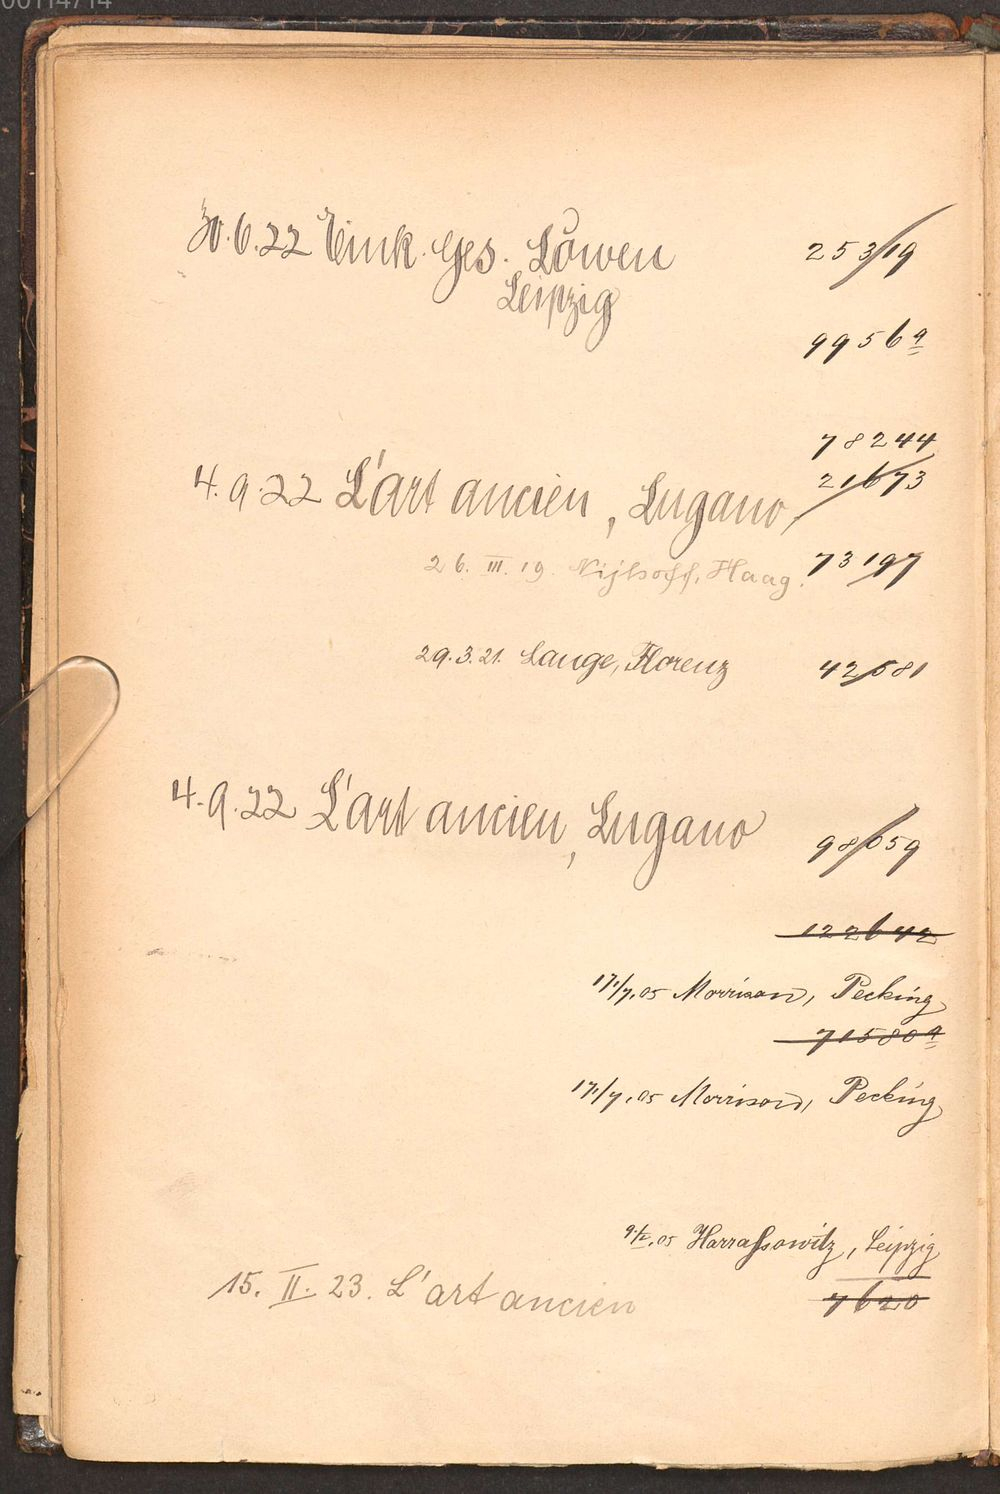 00114714
30.6.22 Eink. Ges. Löwen 253/19
Leipzig
9956a
78244
4.9.22 L'art ancien, Lugano, 21673
26. III. 19. Nijhoff, Haag. 73197
29.3.21. Lange, Florenz 42581
4.9.22 L'art ancien, Lugano 98059
122642
17./7.05 Morrison, Pecking
71580a
17./7.05 Morrison, Pecking
9./X.05 Harrassowitz, Leipzig
15. II. 23. L'art ancien 7620